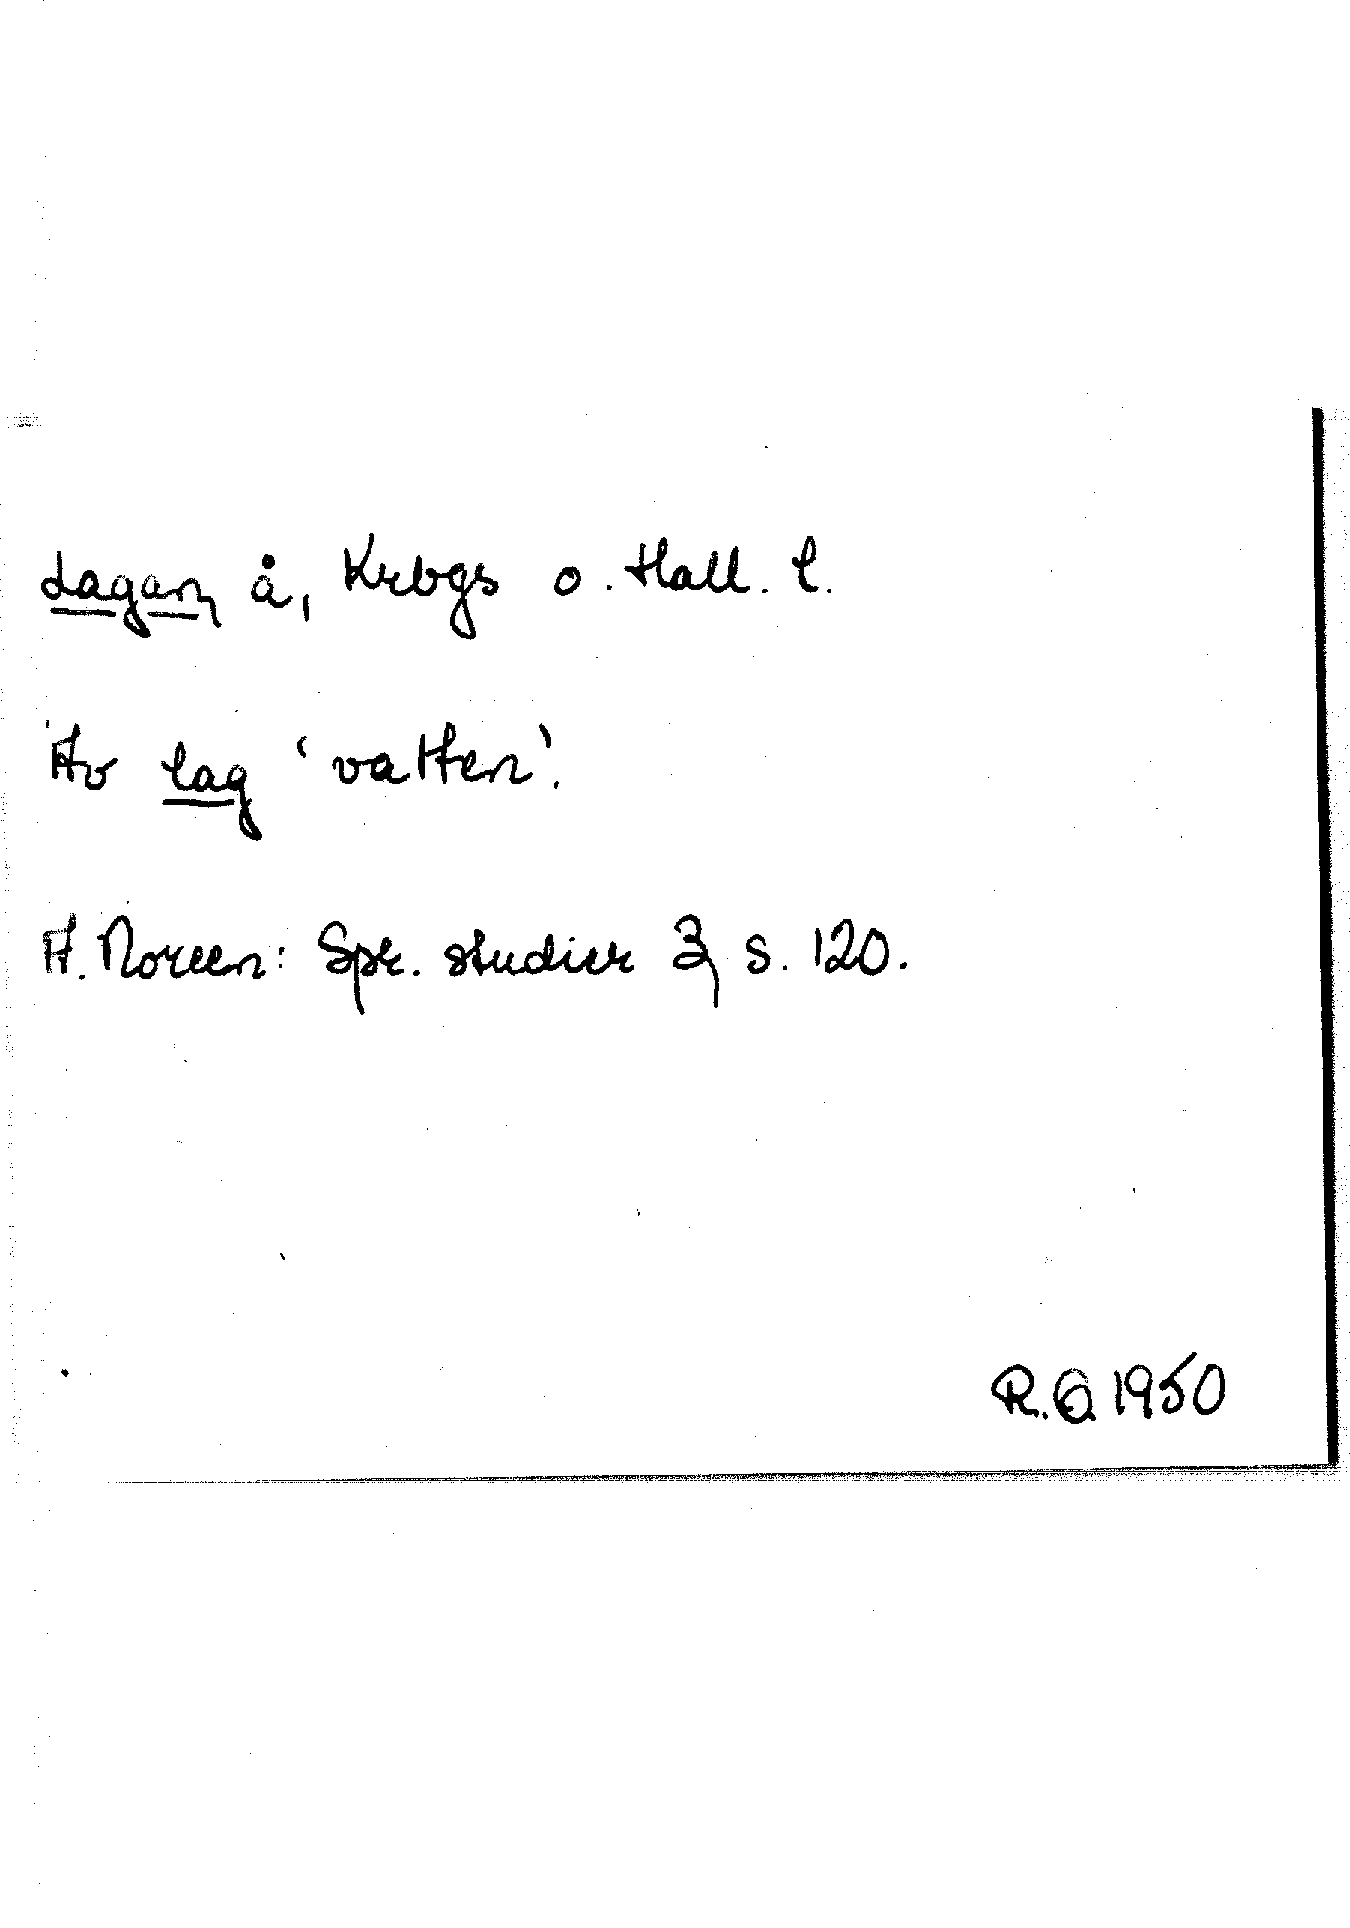 Lagan, å, Krbgs o. Hall. l.
Av lag 'vatten'.
A. Noreen: Spr. studier 3, s. 120.
R.O. 1950